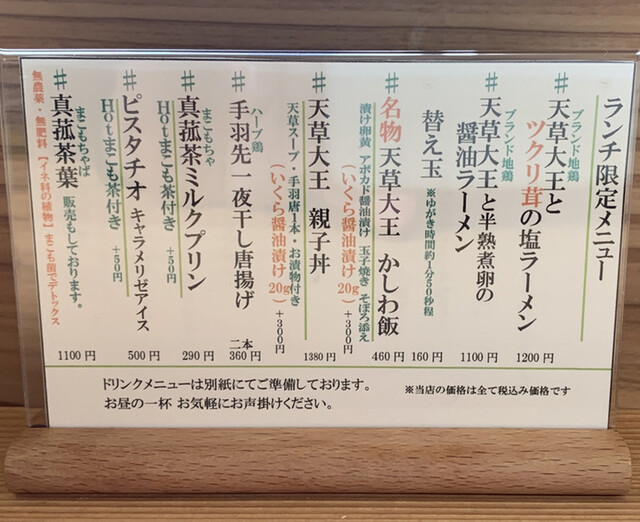 ランチ限定メニュー
# 天草大王と
ブランド地鶏
ツクリ茸の塩ラーメン
1200 円
# 天草大王と半熟煮卵の
ブランド地鶏
醤油ラーメン
1100 円
替え玉 ※ゆがき時間約1分50秒程
160 円
# 名物 天草大王 かしわ飯
460 円
漬け卵黄 アボカド醤油漬け 玉子焼き そぼろ添え
(いくら醤油漬け 20g) +300円
# 天草大王 親子丼
1380 円
天草スープ / 手羽唐1本・お漬物付き
(いくら醤油漬け 20g) +300円
ハーブ鶏
手羽先一夜干し唐揚げ
二本
360 円
# 真菰茶ミルクプリン
まこもちゃ
290 円
Hotまこも茶付き +50円
# ピスタチオ キャラメリゼアイス
500 円
Hotまこも茶付き +50円
# 真菰茶葉 販売もしております。
まこもちゃば
1100 円
無農薬・無肥料【イネ科の植物】まこも菌でデトックス
ドリンクメニューは別紙にてご準備しております。
お昼の一杯 お気軽にお声掛けください。
※当店の価格は全て税込み価格です